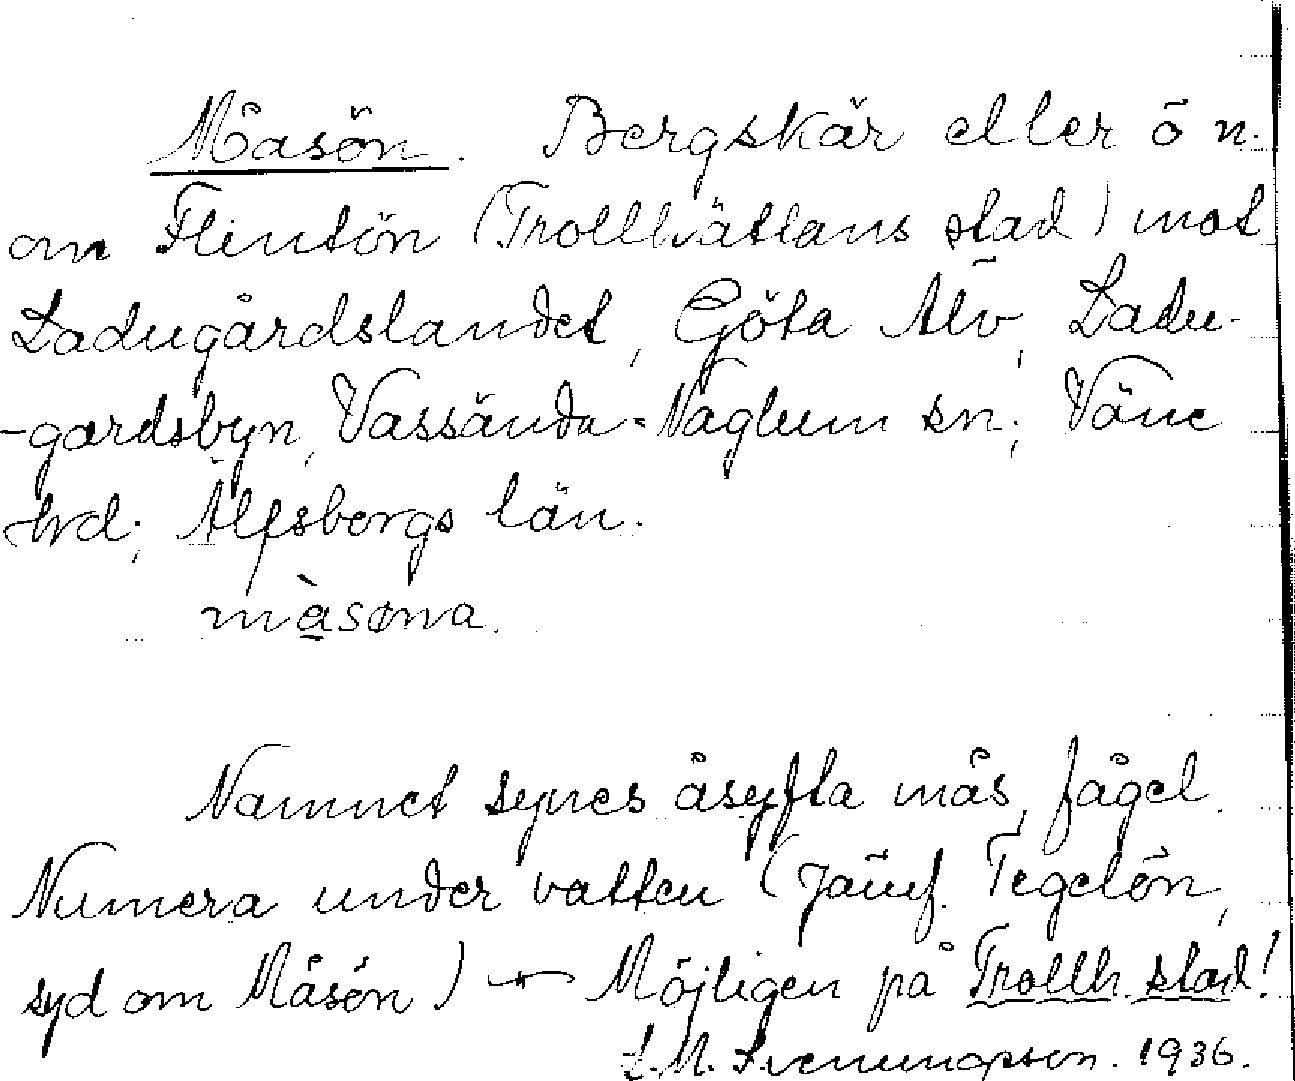 Måsön. Bergskär eller ö n.
om Flintön (Trollhättans stad) mot
Ladugårdslandet, Göta Älv, Ladu-
-gårdsbyn, Vassända-Naglum sn; Väne
hrd; Älfsborgs län.
måsøna.
Namnet synes åsyfta mås, fågel.
Numera under vatten (Jämf. Tegelön,
syd om Måsön) — Möjligen på Trollh. stad!
1936.